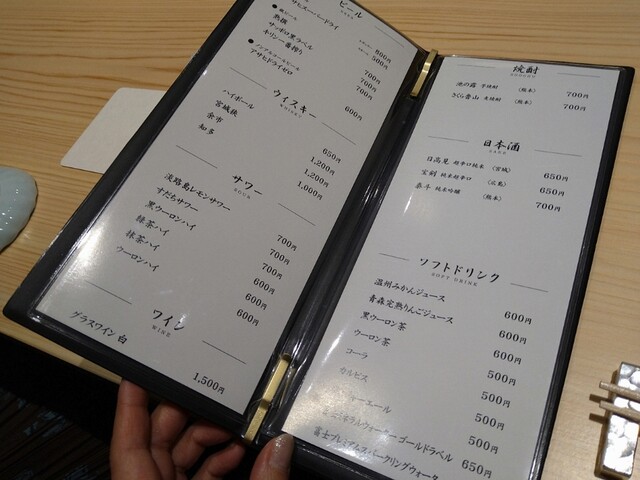 ビール
熟撰
サッポロ黒ラベル
キリン一番搾り
●ノンアルコールビール
アサヒドライゼロ
800円
500円
700円
700円
700円
600円
ウイスキー
WHISKY
ハイボール 650円
宮城峡 1,200円
余市 1,200円
知多 1,000円
サワー
SOUR
淡路島レモンサワー 700円
すだちサワー 700円
黒ウーロンハイ 600円
緑茶ハイ 600円
抹茶ハイ 600円
ウーロンハイ
ワイン
WINE
グラスワイン 白 1,500円
焼酎
池の露 芋焼酎 (熊本) 700円
さくら香山 麦焼酎 (熊本) 700円
日本酒
SAKE
日高見 超辛口純米 (宮城) 650円
宝剣 純米超辛口 (広島) 650円
泰斗 純米吟醸 (熊本) 700円
ソフトドリンク
SOFT DRINK
温州みかんジュース 600円
青森完熟りんごジュース 600円
黒ウーロン茶 600円
ウーロン茶 500円
コーラ 500円
カルピス 500円
ジンジャーエール 500円
富士ミネラルウォーターゴールドラベル 650円
富士プレミアムスパークリングウォーター